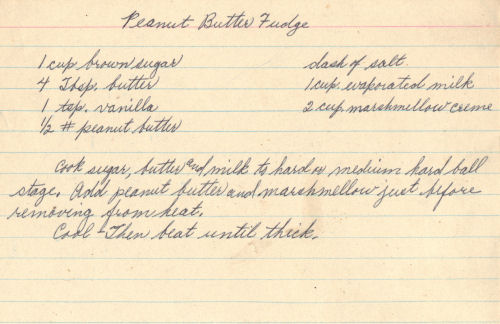 Peanut Butter Fudge
1 cup brown sugar
4 Tbsp. butter
1 tsp. vanilla
1/2 # peanut butter
dash of salt.
1 cup evaporated milk
2 cup marshmellow creme
Cook sugar, butter and milk to hard or medium hard ball
stage. Add peanut butter and marshmellow just before
removing from heat.
Cool - Then beat until thick.